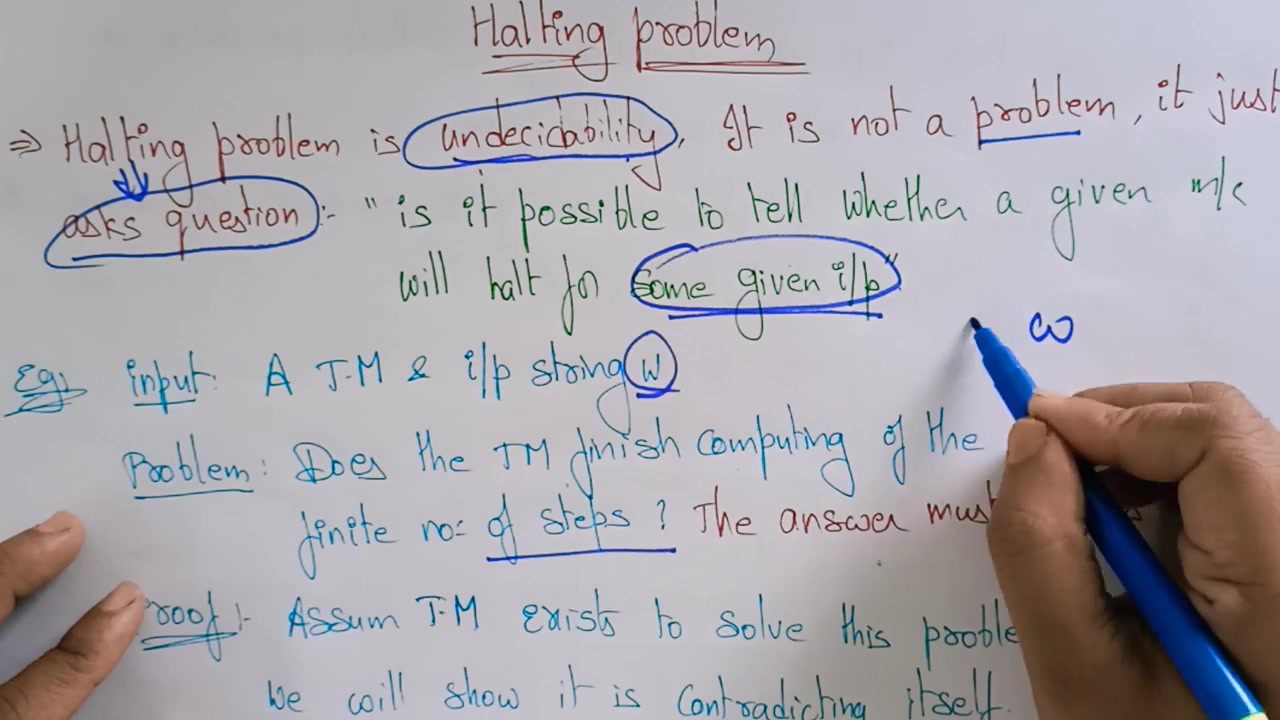 Halting problem
⇒ Halting problem is undecidability. It is not a problem, it just
asks question:- "is it possible to tell whether a given m/c
will halt for some given i/p"
ω
Eg: input: A T.M & i/p string w
Problem: Does the TM finish computing of the
finite no: of steps? The answer must
Proof:- Assum T.M exists to solve this proble
We will show it is contradicting itself.